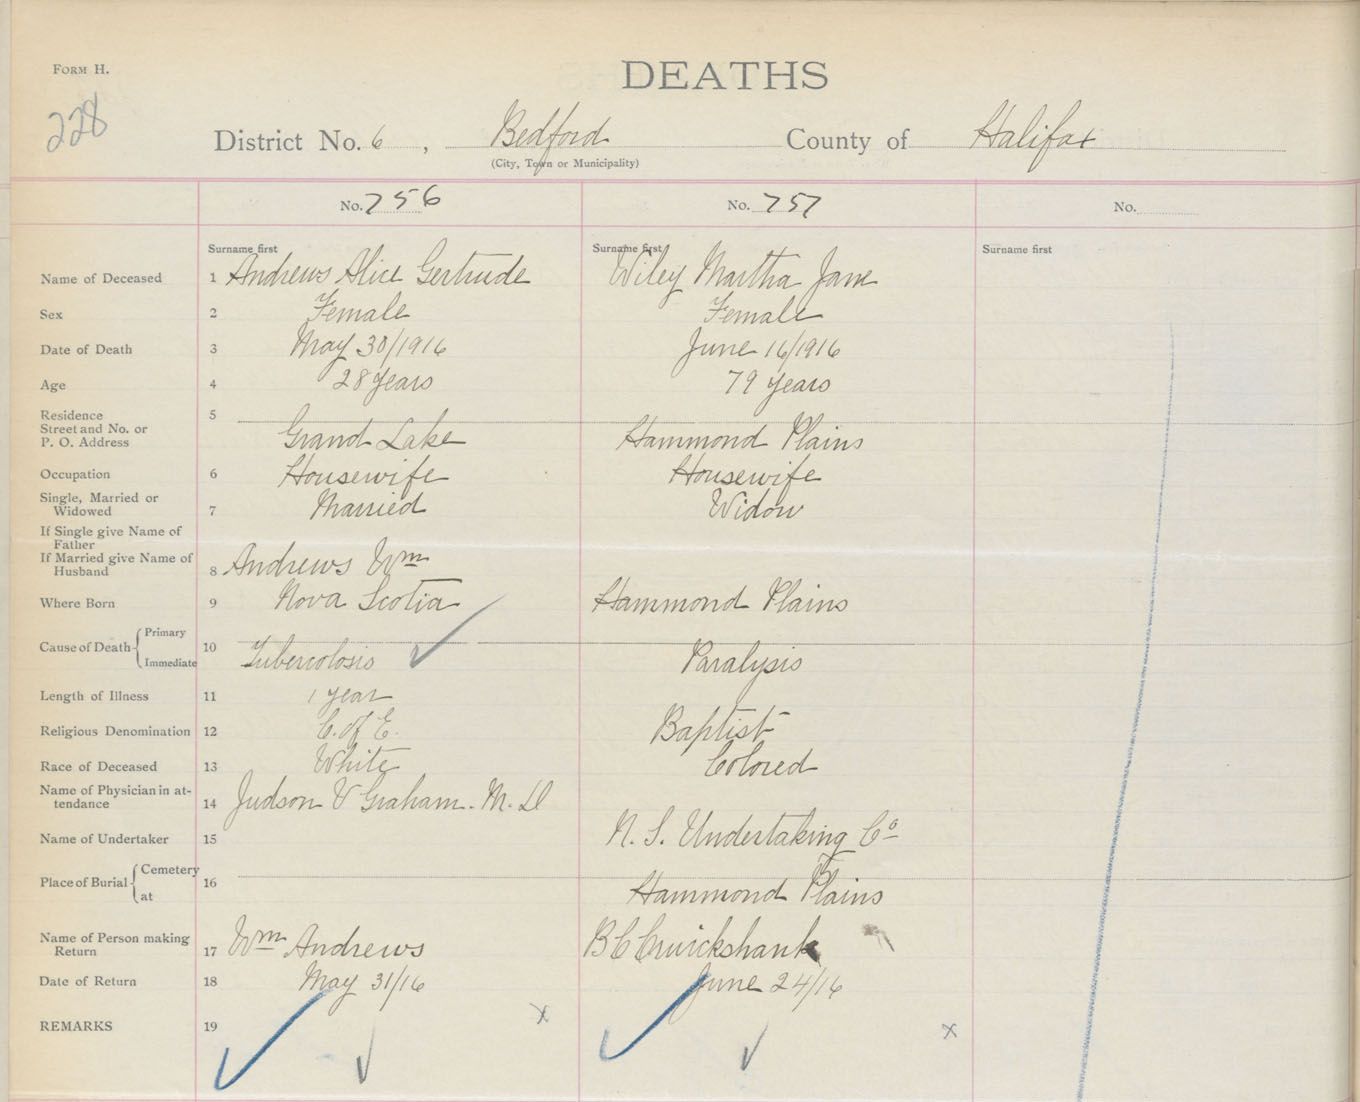 FORM H.
DEATHS
228
District No. 6, Bedford County of Halifax
(City, Town or Municipality)
No. 756 No. 757 No.
Surname first Surname first Surname first
Name of Deceased 1 Andrews Alice Gertrude Wiley Martha Jane
Sex 2 Female Female
Date of Death 3 May 30/1916 June 16/1916
Age 4 28 years 79 years
Residence 5
Street and No. or
P. O. Address Grand Lake Hammond Plains
Occupation 6 Housewife Housewife
Single, Married or
Widowed 7 Married Widow
If Single give Name of
Father
If Married give Name of
Husband 8 Andrews Wm
Where Born 9 Nova Scotia Hammond Plains
Cause of Death { Primary 10
Immediate Tubercolosis Paralysis
Length of Illness 11 1 year
Religious Denomination 12 C. of E. Baptist
Race of Deceased 13 White Colored
Name of Physician in at-
tendance 14 Judson V Graham. M. D
Name of Undertaker 15 N. S. Undertaking Co
Place of Burial { Cemetery 16
at Hammond Plains
Name of Person making
Return 17 Wm Andrews B C Cruickshank
Date of Return 18 May 31/16 June 24/16
REMARKS 19 x x